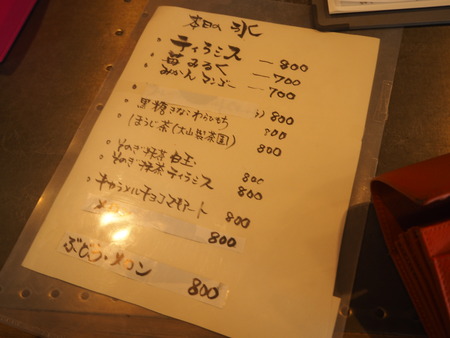 本日の氷
ティラミス — 800
苺みるく — 700
みかんマンゴー — 700
800
黒糖きなこわらびもち 800
ほうじ茶(大山製茶園) 800
そのぎ抹茶 白玉 800
そのぎ抹茶ティラミス 800
キャラメルチョコマキアート 800
800
ぶどう・メロン 800